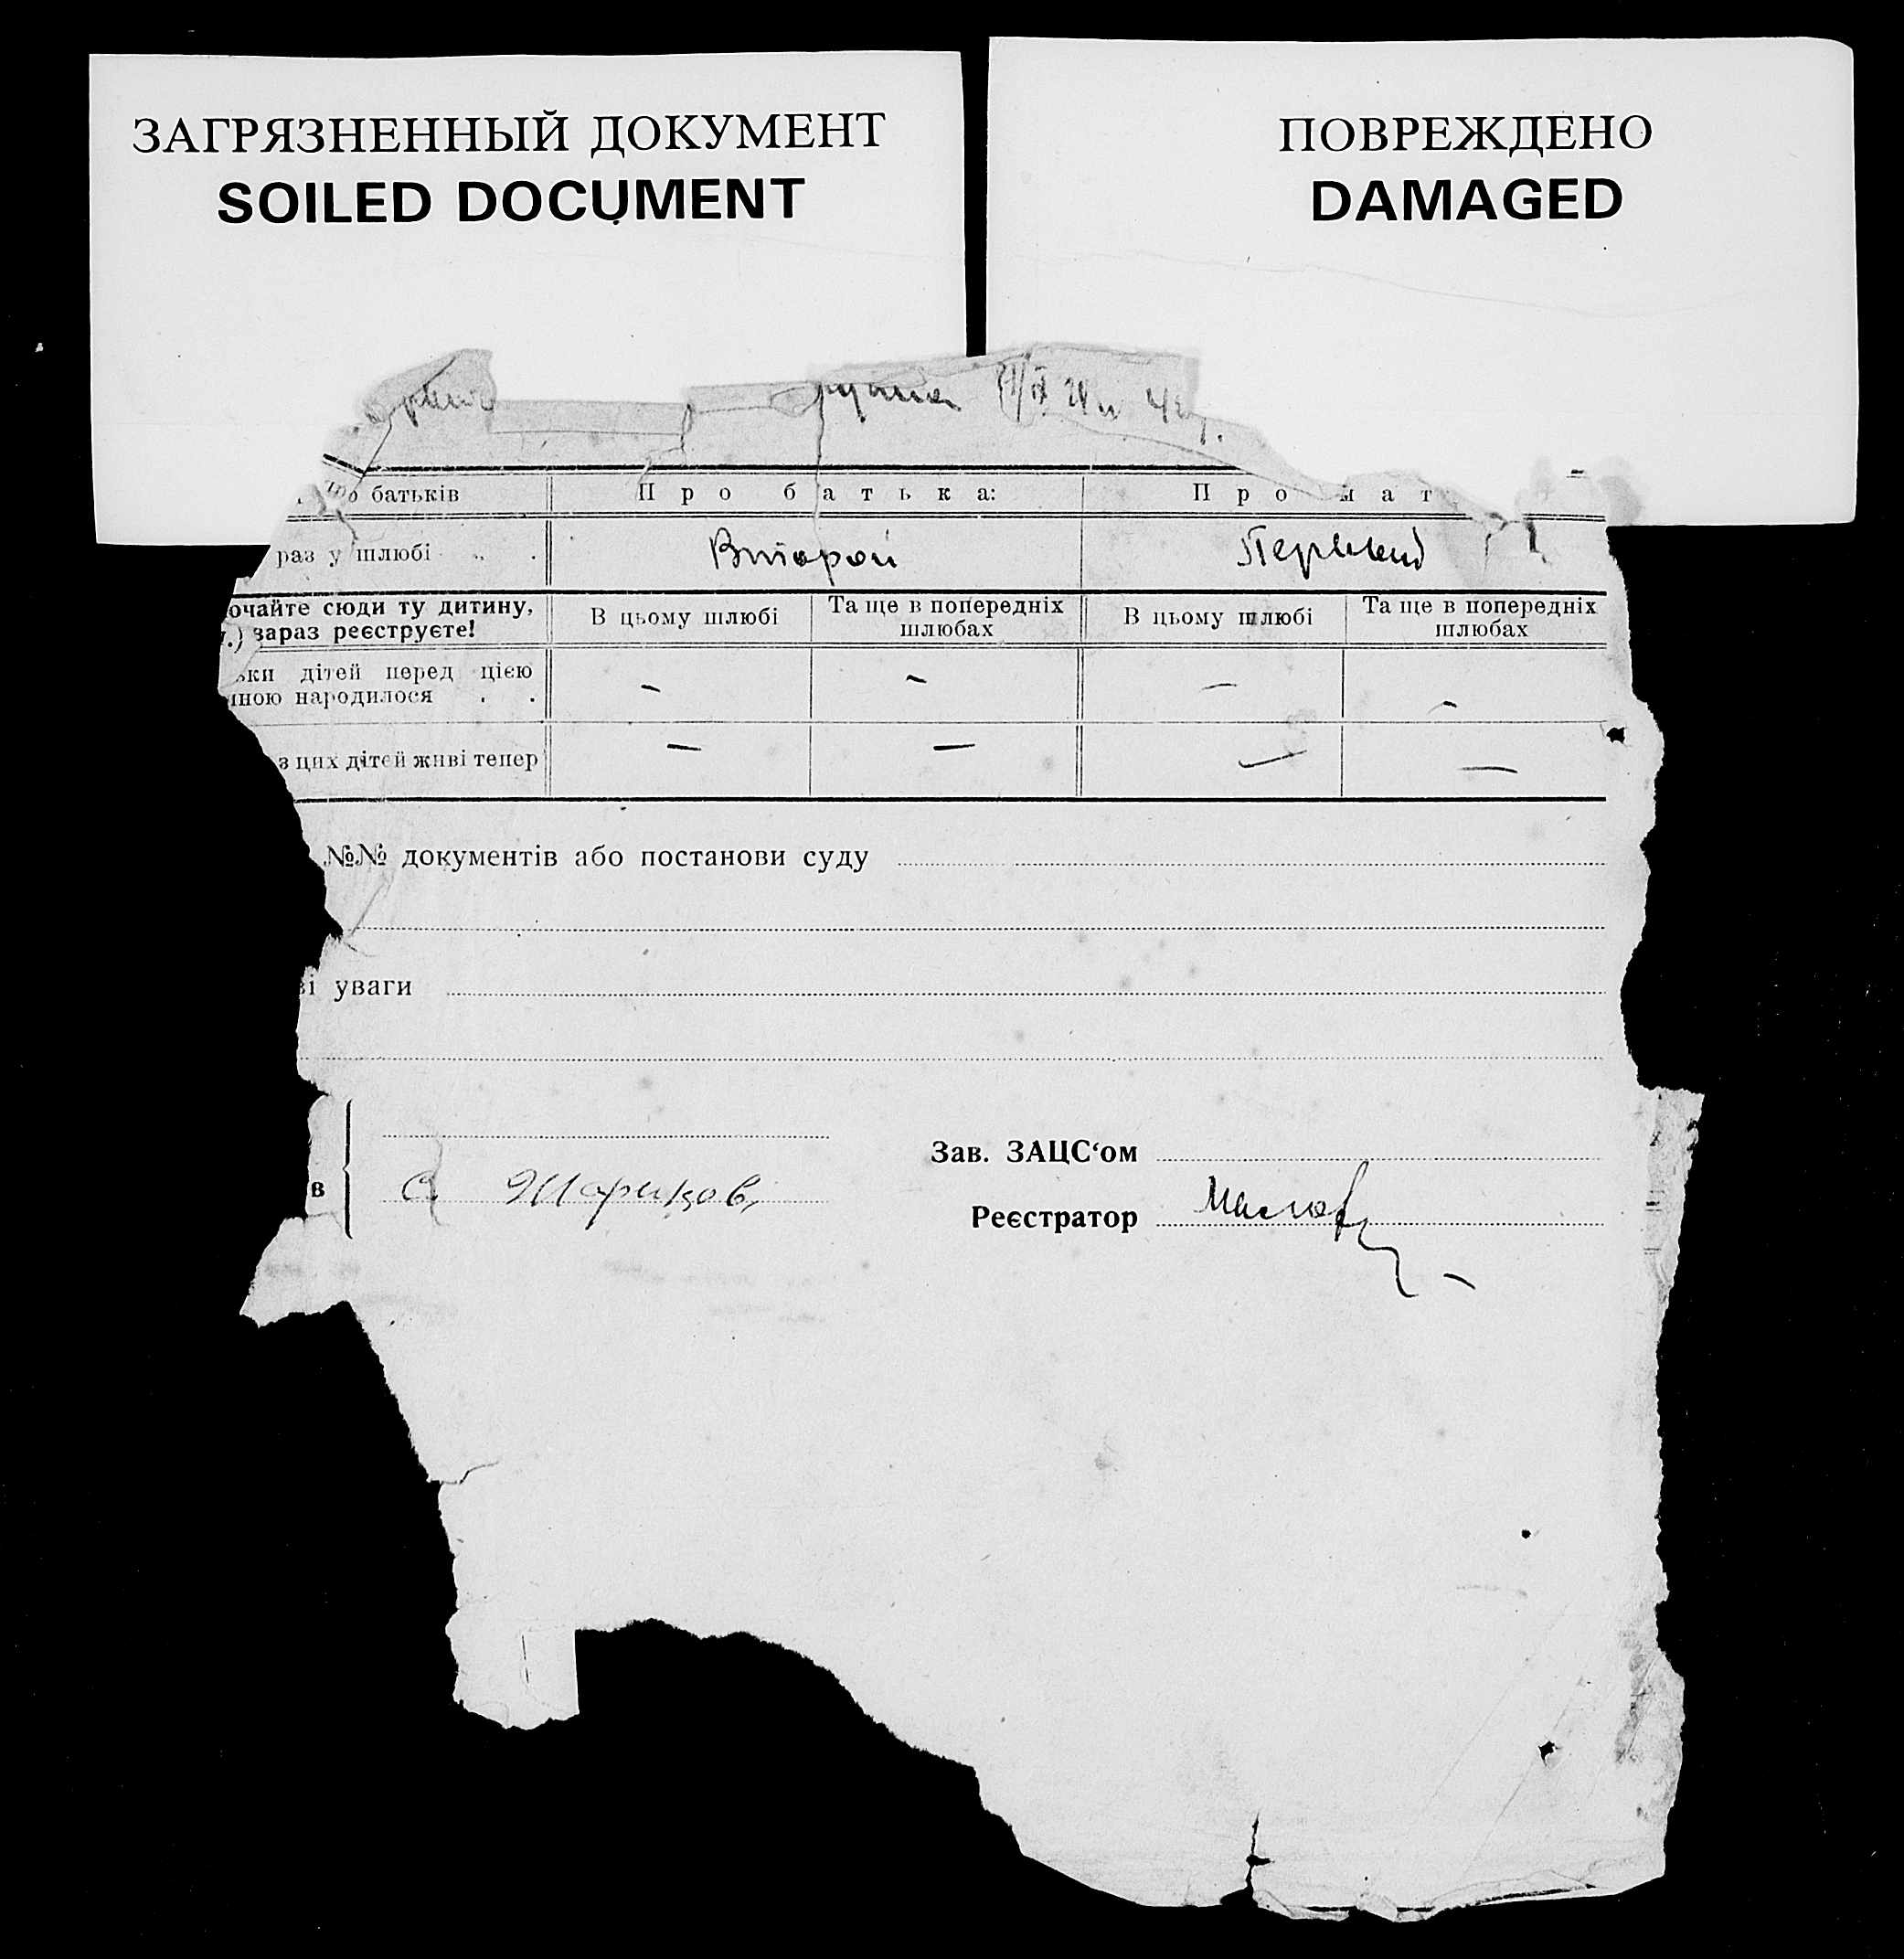 ЗАГРЯЗНЕННЫЙ ДОКУМЕНТ
SOILED DOCUMENT
ПОВРЕЖДЕНО
DAMAGED
батьків
Про батька:
Про мат
раз у шлюбі . .
Второй
Первый
очайте сюди ту дитину,
.) зараз реєструєте!
В цьому шлюбі
Та ще в попередніх
шлюбах
В цьому шлюбі
Та ще в попередніх
шлюбах
ьки дітей перед цією
иною народилося . .
– – – –
з цих дітей живі тепер
– – – –
№№ документів або постанови суду
і уваги
в
Зав. ЗАЦС‘ом
Реєстратор